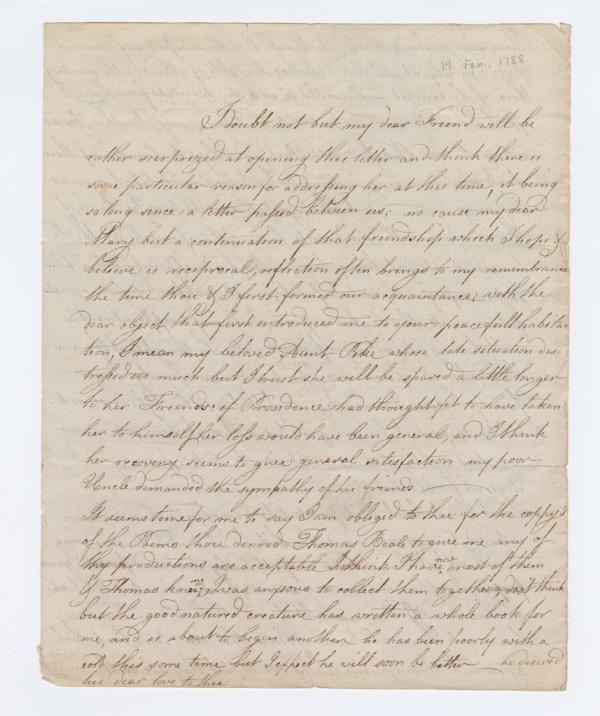 19 Feb., 1788
I doubt not but my dear Friend will be
rather surprized at opening this letter and think there is
some particular reason for addressing her at this time, it being
so long since a letter passed between us; no cause my dear
Mary but a continuation of that friendship which I hope &
believe is reciprocal, reflection often brings to my remembrance
the time thou & I first formed our acquaintance; with the
dear object that first introduced me to your peacefull habita-
tion, I mean my beloved Aunt Pike whose late situation dis-
tressed us much but I trust she will be spared a little longer
to her Friends: if Providence had thought fit to have taken
her to himself her loss would have been general, and I think
her recovery seems to give general satisfaction my poor
Uncle demanded the sympathy of his friends
It seems time for me to say I am obliged to thee for the coppy's
of the Poems thou desired Thomas Beale to give me any of
thy productions are acceptable I think I have now most of them
& Thomas knowing I was anxious to collect them together, dost think
but the good natured creature has written a whole book for
me, and is about to begin another he has been poorly with a
cold this some time but I expect he will soon be better he desired
his dear love to thee